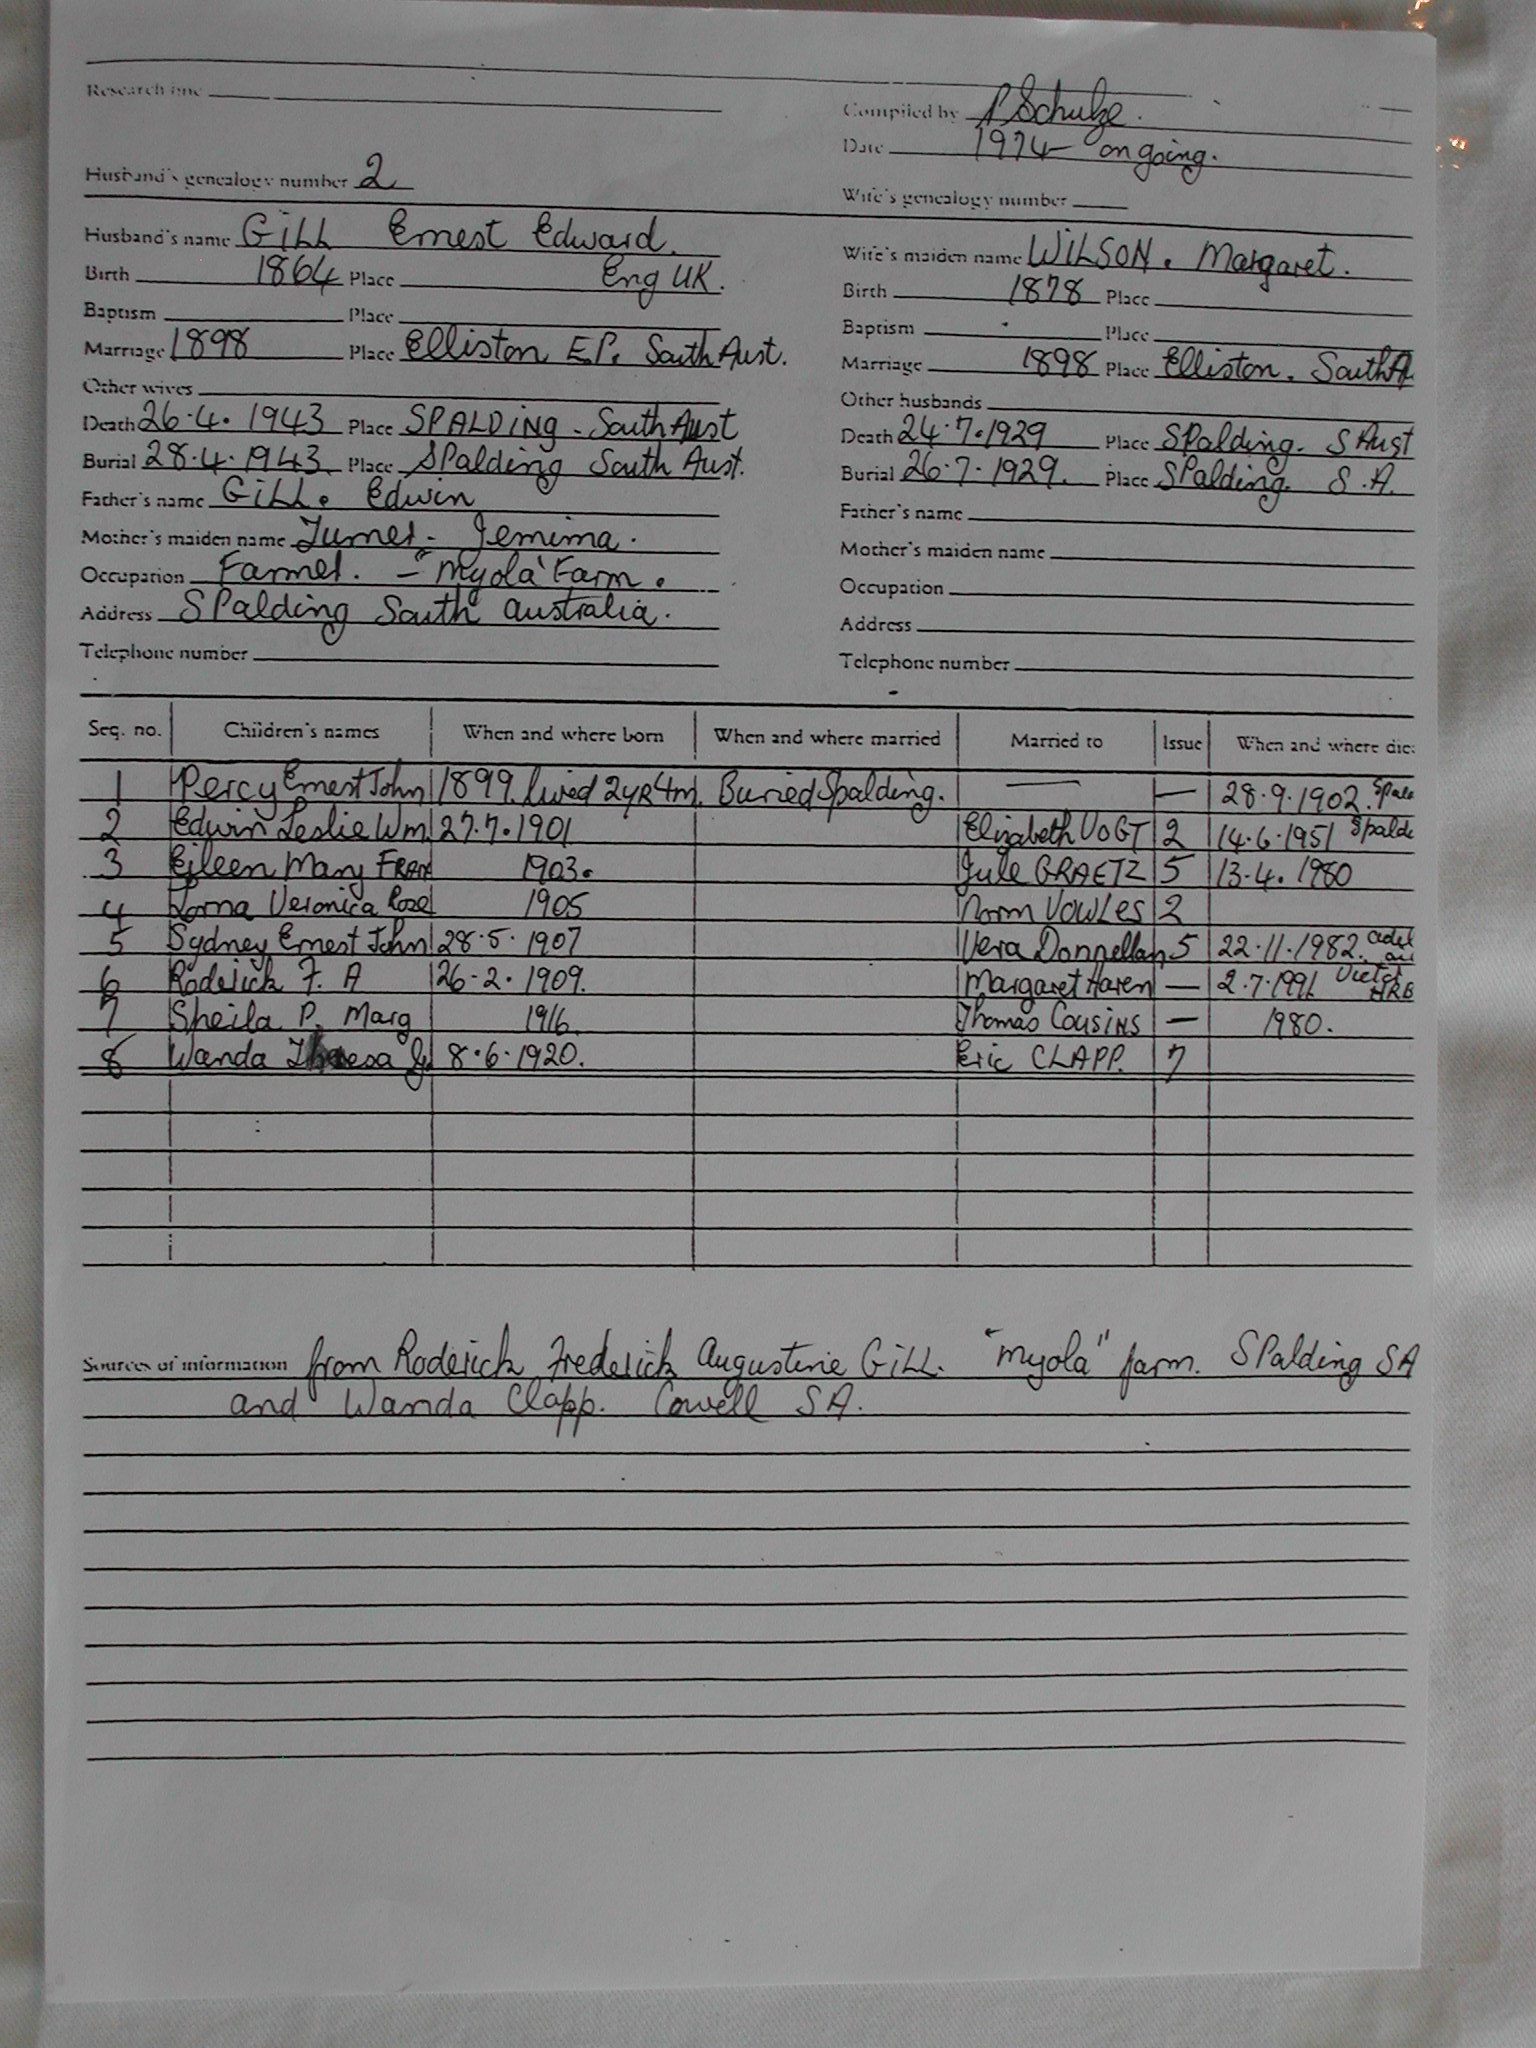 Research line
Compiled by P Schulze.
Date 1974 - on going.
Husband's genealogy number 2
Wife's genealogy number
Husband's name GiLL Ernest Edward.
Wife's maiden name WiLSON. Margaret.
Birth 1864 Place Eng UK.
Birth 1878 Place
Baptism Place
Baptism Place
Marriage 1898 Place Elliston E.P. South Aust.
Marriage 1898 Place Elliston. South A
Other wives
Other husbands
Death 26.4.1943 Place SPALDiNG - South Aust
Death 24.7.1929 Place Spalding. S Aust
Burial 28.4.1943. Place Spalding South Aust.
Burial 26.7.1929. Place Spalding. S.A.
Father's name GiLL. Edwin
Father's name
Mother's maiden name Turner - Jemima.
Mother's maiden name
Occupation Farmer. - "Myola" Farm.
Occupation
Address Spalding South australia.
Address
Telephone number
Telephone number
Seq. no. Children's names When and where born When and where married Married to Issue When and where die
1 Percy Ernest John 1899. lived 2yR 4m. Buried Spalding. — — 28.9.1902. Spal
2 Edwin Leslie Wm 27.7.1901 Elizabeth VOGT 2 14.6.1951 Spald
3 Eileen Mary FRAN 1903. Jule GRAETZ 5 13.4.1980
4 Lorna Veronica Rose 1905 Norm VOWLES 2
5 Sydney Ernest John 28.5.1907 Vera Donnellan 5 22.11.1982. adel
6 Roderick F. A 26.2.1909. Margaret Haren — 2.7.1991
7 Sheila P. Marg 1916. Thomas COUSiNS — 1980.
8 Wanda Theresa 8.6.1920. Eric CLAPP. 7
Sources of information from Roderick Frederick Augustine GiLL. "myola" farm. Spalding SA
and Wanda Clapp. Cowell SA.